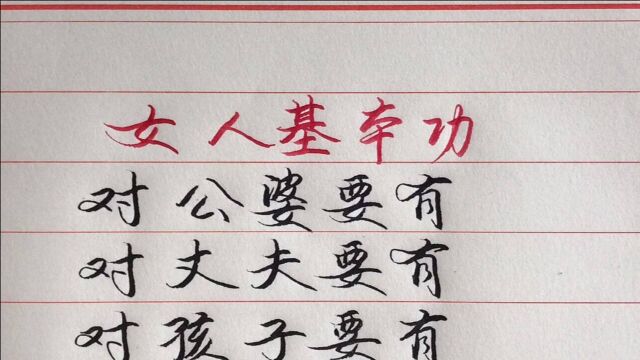 女人基本功
对公婆要有
对丈夫要有
对孩子要有